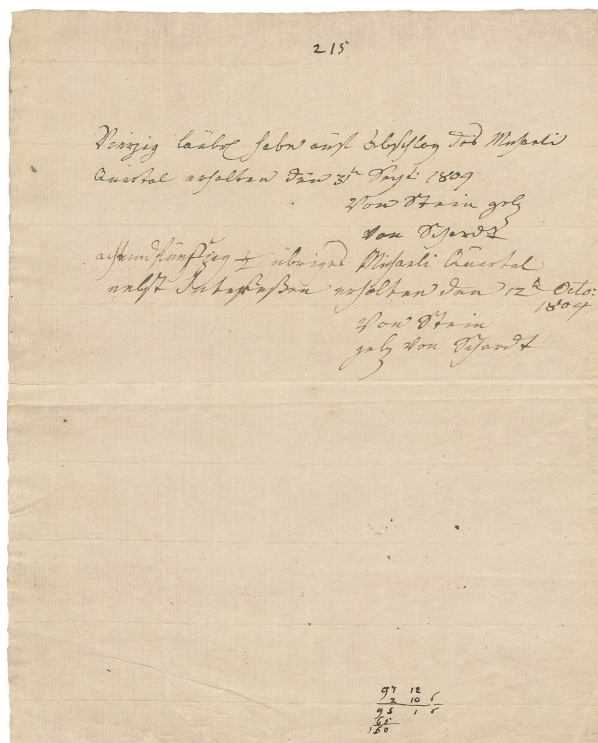 215
Vierzig laubth habe auf Abschlag des Michaeli
Quartal erhalten den 3t Sept: 1804
von Stein geb
von Schardt
achtundfünfzig übriges Michaeli Quartal
nebst Interessen erhalten den 12t Octo:
1804
von Stein
geb von Schardt
97 12
2 10 6
95 1 6
65
160